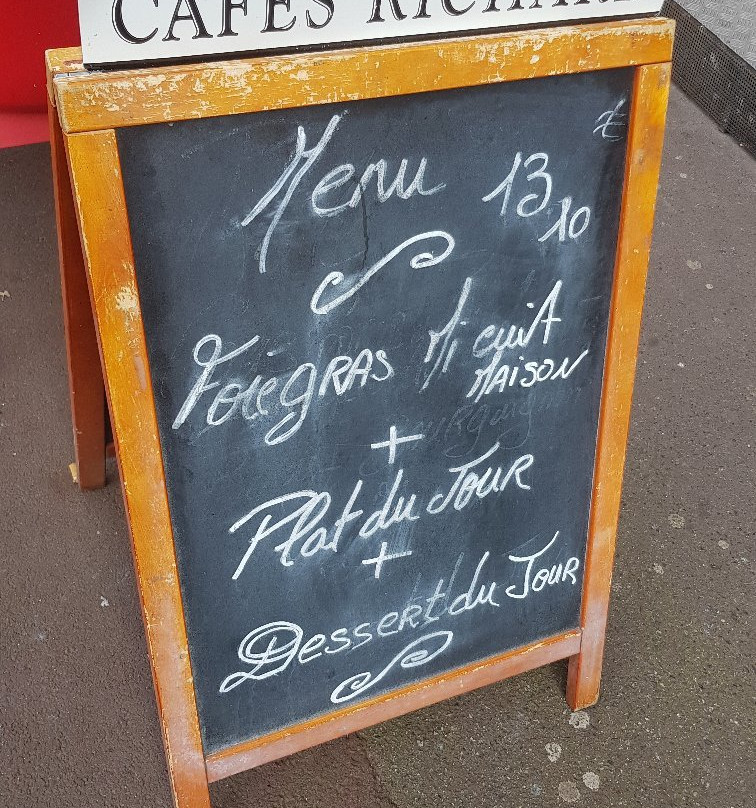 CAFÉS RICHARD
Menu 13,10 €
Foie gras Mi cuit
MAISON
+
Plat du Jour
+
Dessert du Jour